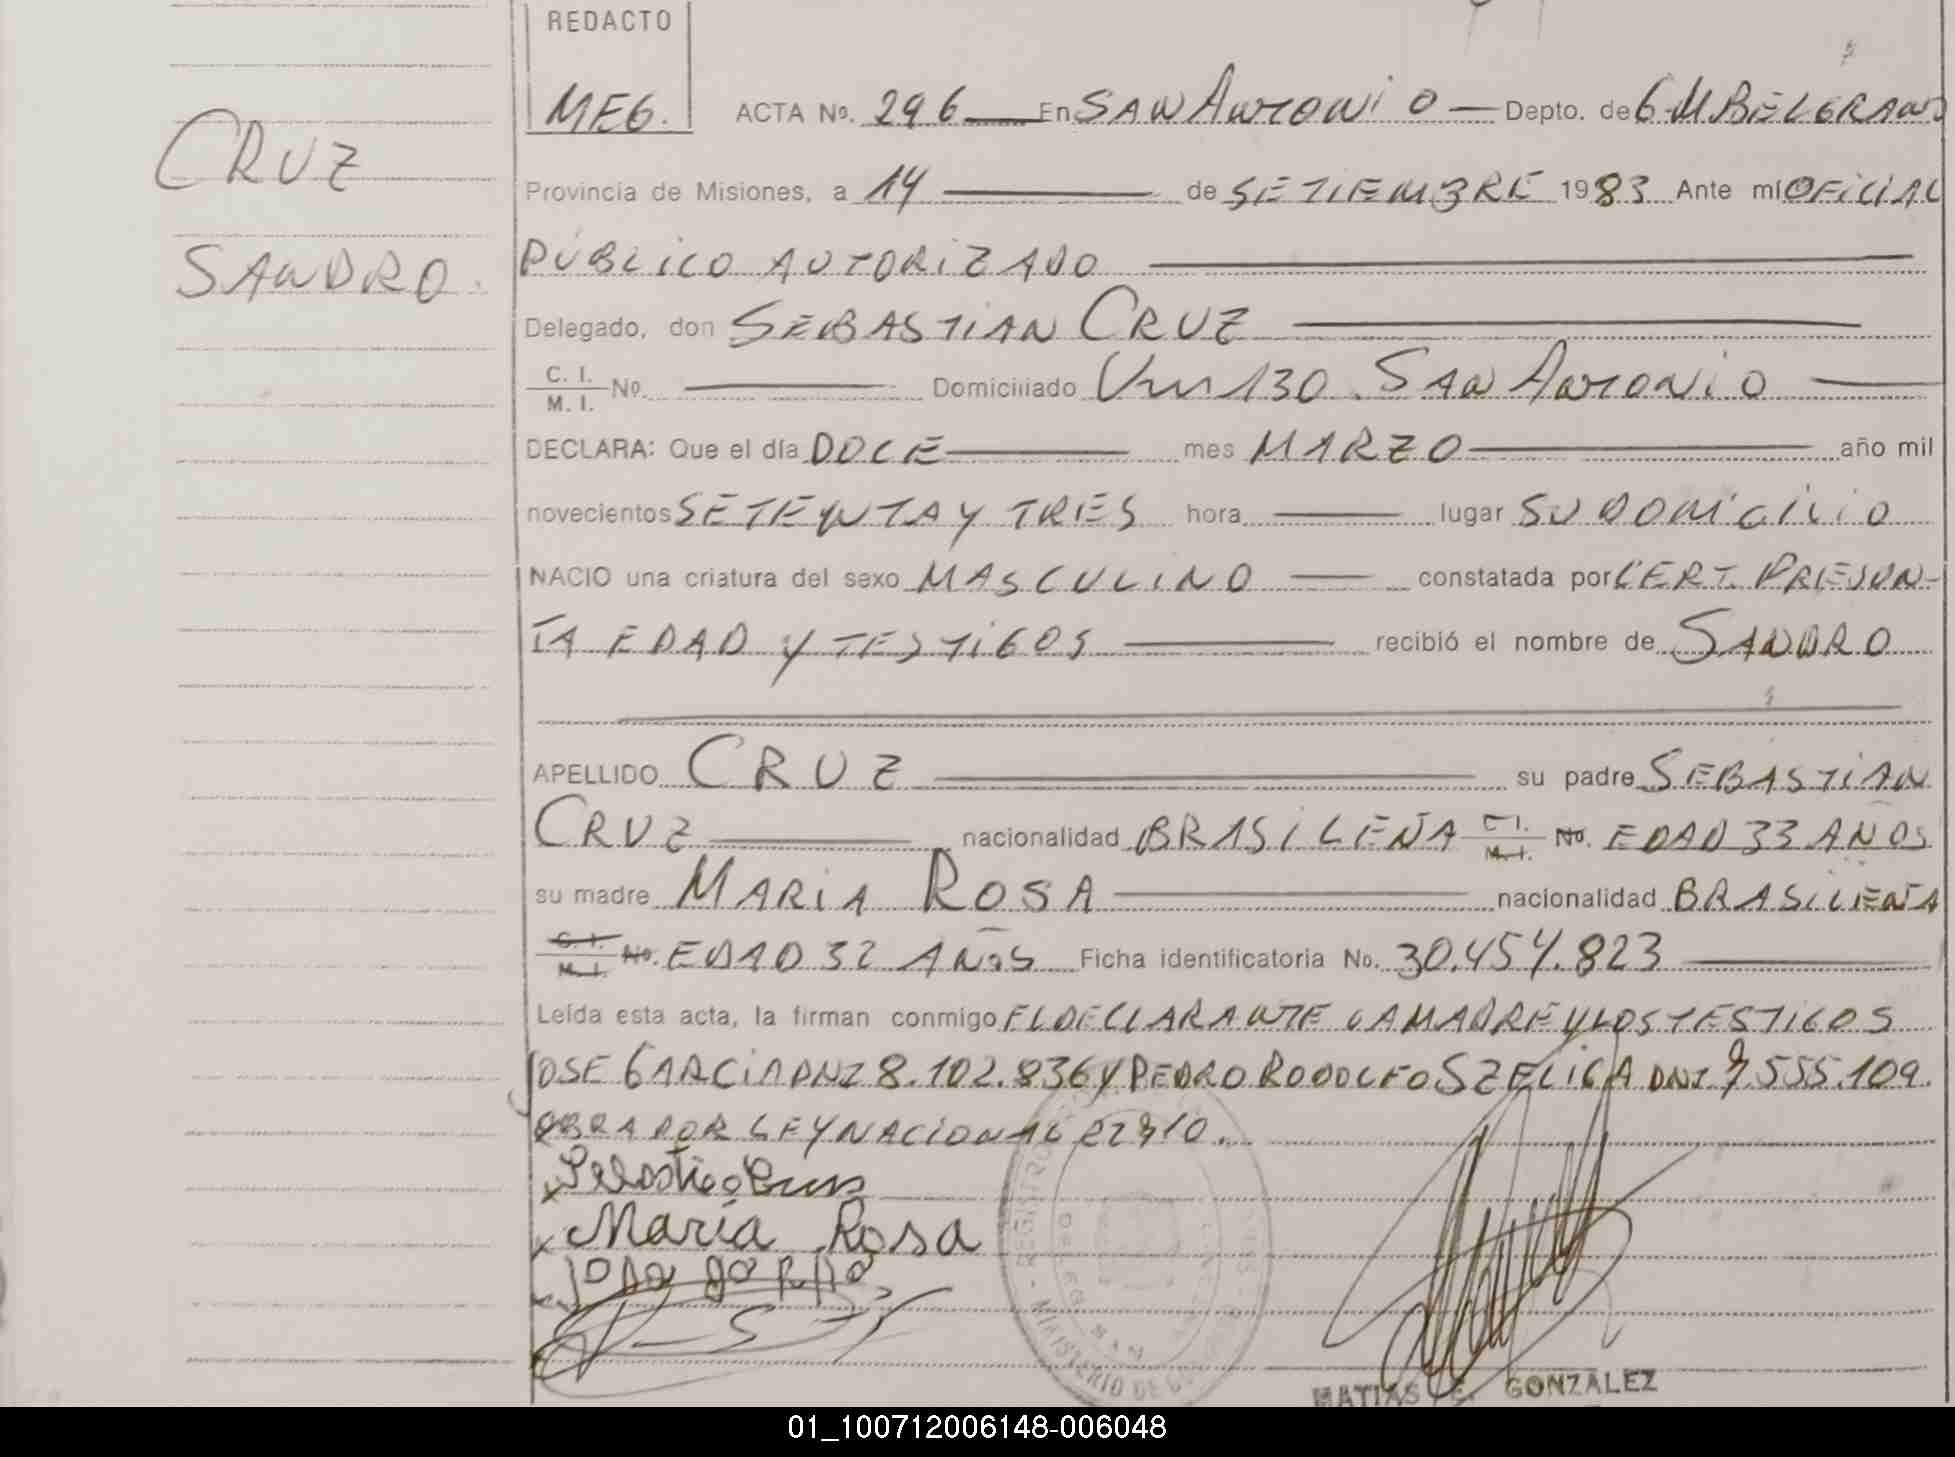 REDACTO
MEG.
ACTA No. 296 En SAN ANTONIO Depto. de G. M. BELGRANO
CRUZ
SANDRO.
Provincia de Misiones, a 14 de SETIEMBRE 1983 Ante mí OFICIAL
PÚBLICO AUTORIZADO
Delegado, don SEBASTIAN CRUZ
C. I.
M. I. No. Domiciliado Km 130. SAN ANTONIO
DECLARA: Que el día DOCE mes MARZO año mil
novecientos SETENTA Y TRES hora lugar SU DOMICILIO
NACIO una criatura del sexo MASCULINO constatada por CERT. PRESUN-
TA EDAD Y TESTIGOS recibió el nombre de SANDRO
APELLIDO CRUZ su padre SEBASTIAN
CRUZ nacionalidad BRASILEÑA C. I. M. I. No. EDAD 33 AÑOS
su madre MARIA ROSA nacionalidad BRASILEÑA
C. I. M. I. No. EDAD 32 AÑOS Ficha identificatoria No. 30.454.823
Leída esta acta, la firman conmigo EL DECLARANTE LA MADRE Y LOS TESTIGOS
JOSE GARCIA DNI 8.102.836 Y PEDRO RODOLFO SZELIGA DNI 7.555.109.
OBRA POR LEY NACIONAL 22910.
María Rosa
MATIAS E. GONZALEZ
01_100712006148-006048